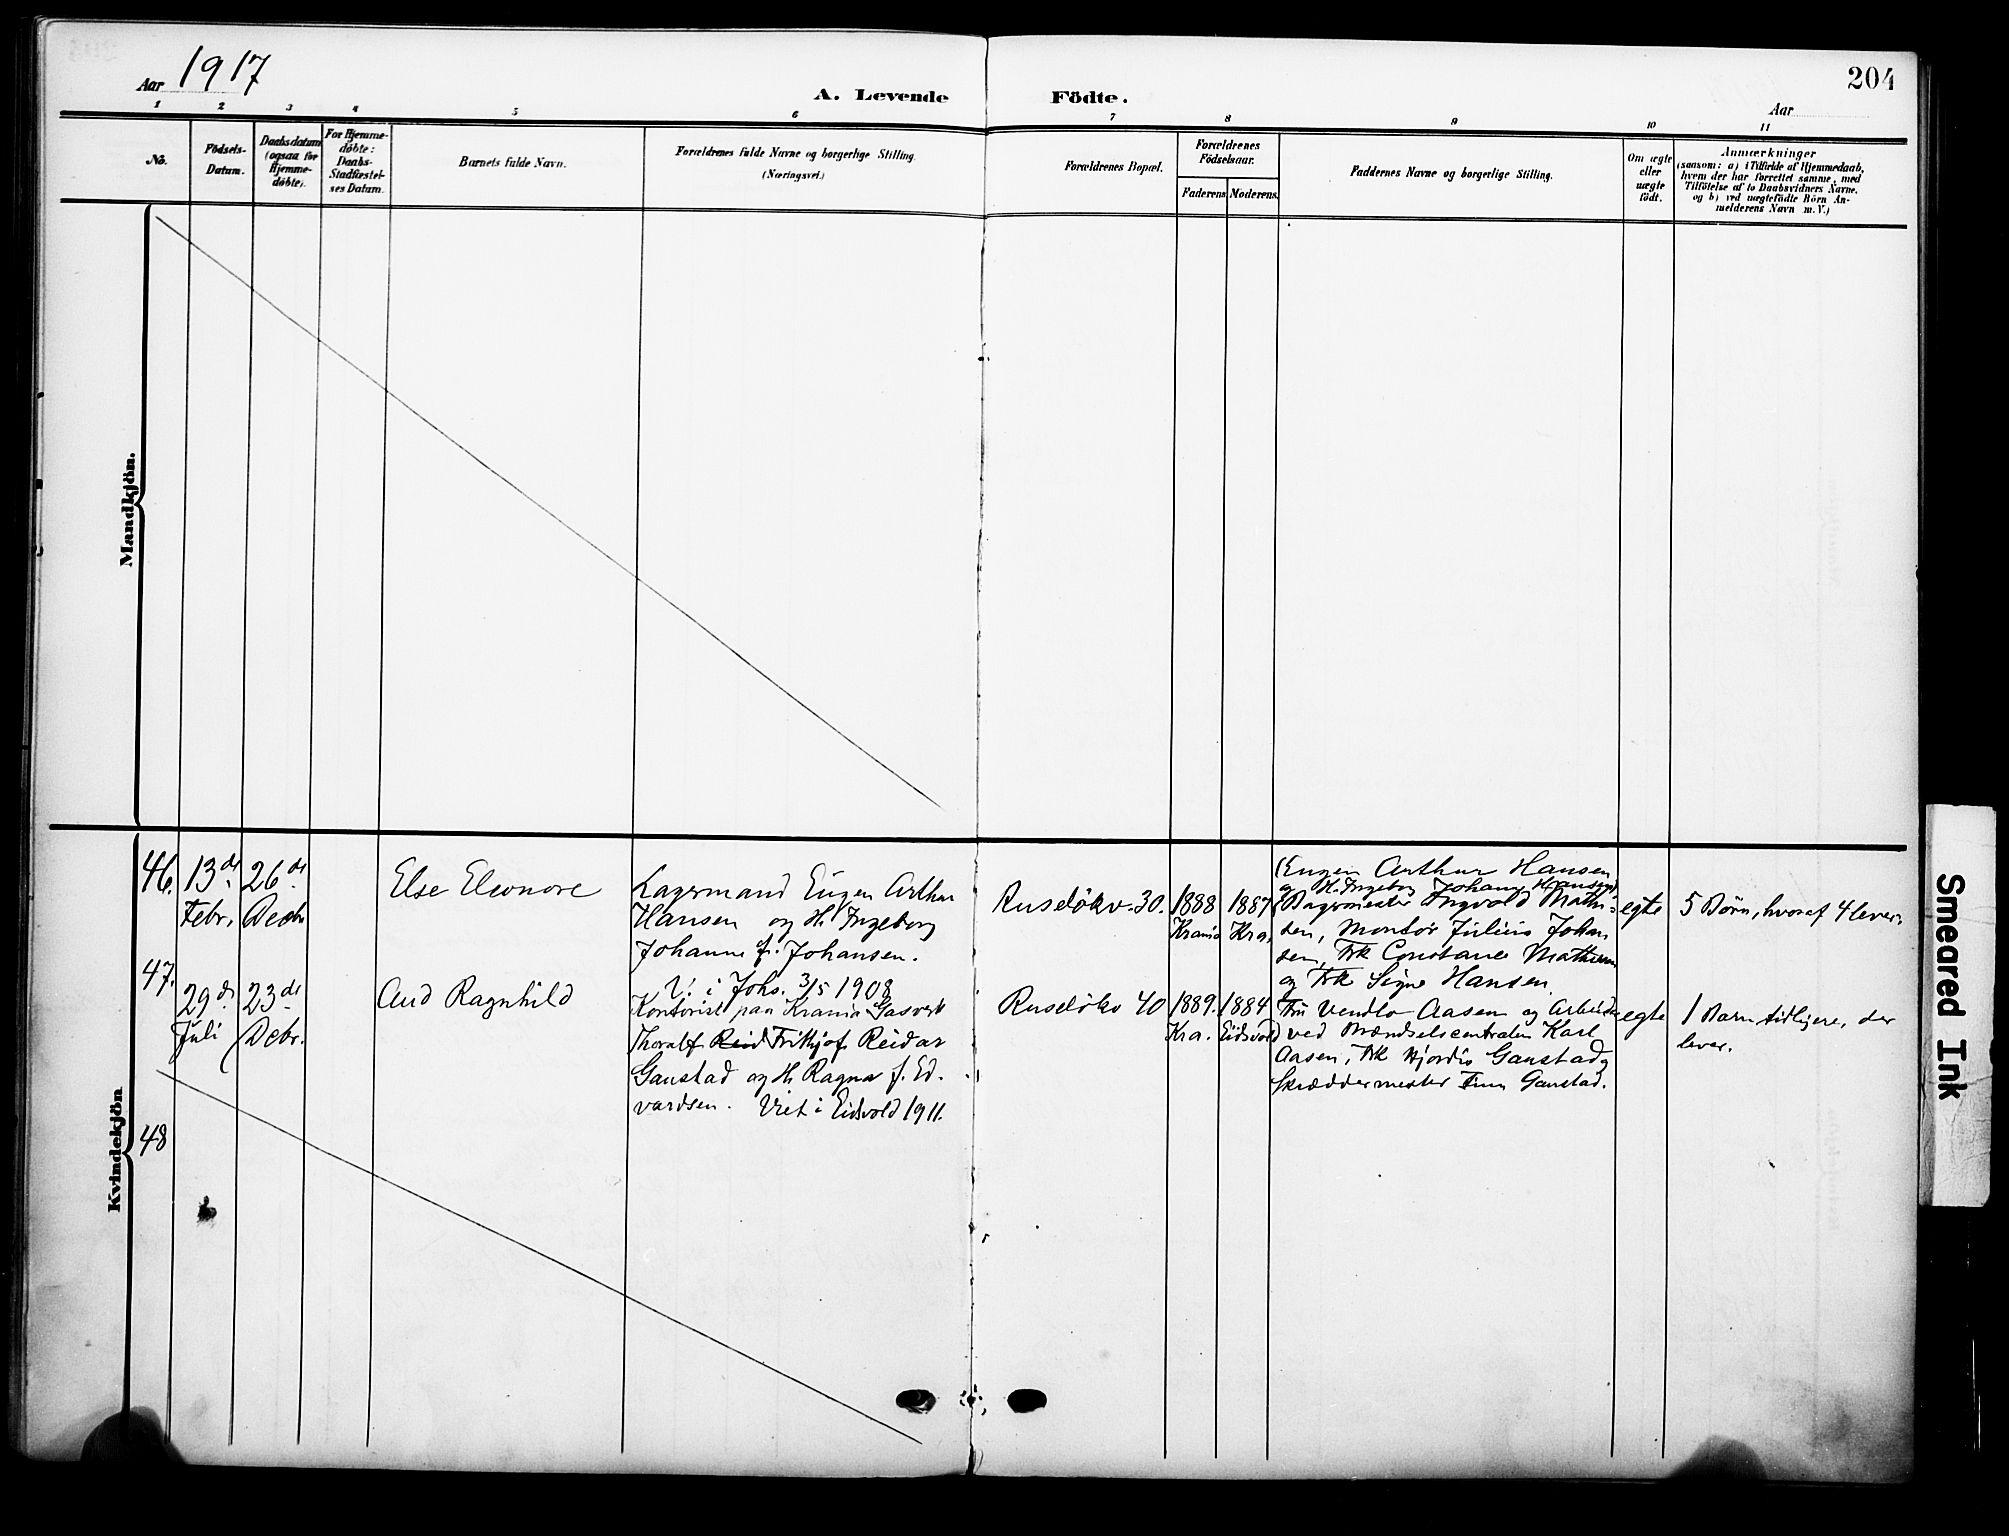 Aar 1917
A. Levende
Födte.
204
Aar
1 2 3 4 5 6 7 8 9 10 11
No.
Födsels-
Datum.
Daabsdatum
(ogsaa for
Hjemme-
döbte).
For Hjemme-
döbte:
Daabs-
Stadfæstel-
ses Datum.
Barnets fulde Navn.
Forældrenes fulde Navne og borgerlige Stilling.
(Næringsvei.)
Forældrenes Bopæl.
Forældrenes
Födselsaar.
Faderens
Moderens.
Faddernes Navne og borgerlige Stilling.
Om ægte
eller
uægte
födt.
Anmærkninger
(saasom: a) i Tilfælde af Hjemmedaab,
hvem der har forrettet samme, med
Tilföielse af to Daabsvidners Navne,
og b) ved uægtefödte Börn An-
melderens Navn m. V.)
Mandkjön.
Kvindekjön
46.
13de
Febr.
26de
Decbr
Else Eleonore
Lagermand Eugen Arthur
Hansen og H. Ingeborg
Johanne f. Johansen.
V. i Johs. 3/5 1908
Ruselökv. 30.
1888
Krania
1887
Kra.
(Eugen Arthur Hansen
og H. Ingeborg Johanne Hansen)
Bagermester Ingvold Mathi-
sen, Montör Julius Johan
sen, Frk Constance Mathisen
og Frk Signe Hansen.
egte
5 Börn, hvoraf 4 lever.
47.
29de
Juli
23de
Debr.
Aud Ragnhild
Kontorist paa Krania Gasverk
Thoralf Reid Frithjof Reidar
Ganstad og H. Ragna f. Ed-
vardsen. Viet i Eidsvold 1911.
Ruselökv 40
1889.
Kra.
1884
Eidsvold
Fru Vendla Aasen og Arbeider
ved Brændselscentralen Karl
Aasen, Frk Hjordis Ganstad og
Skræddermester Finn Ganstad.
egte
1 Barn tidligere, der
lever.
48
Smeared Ink